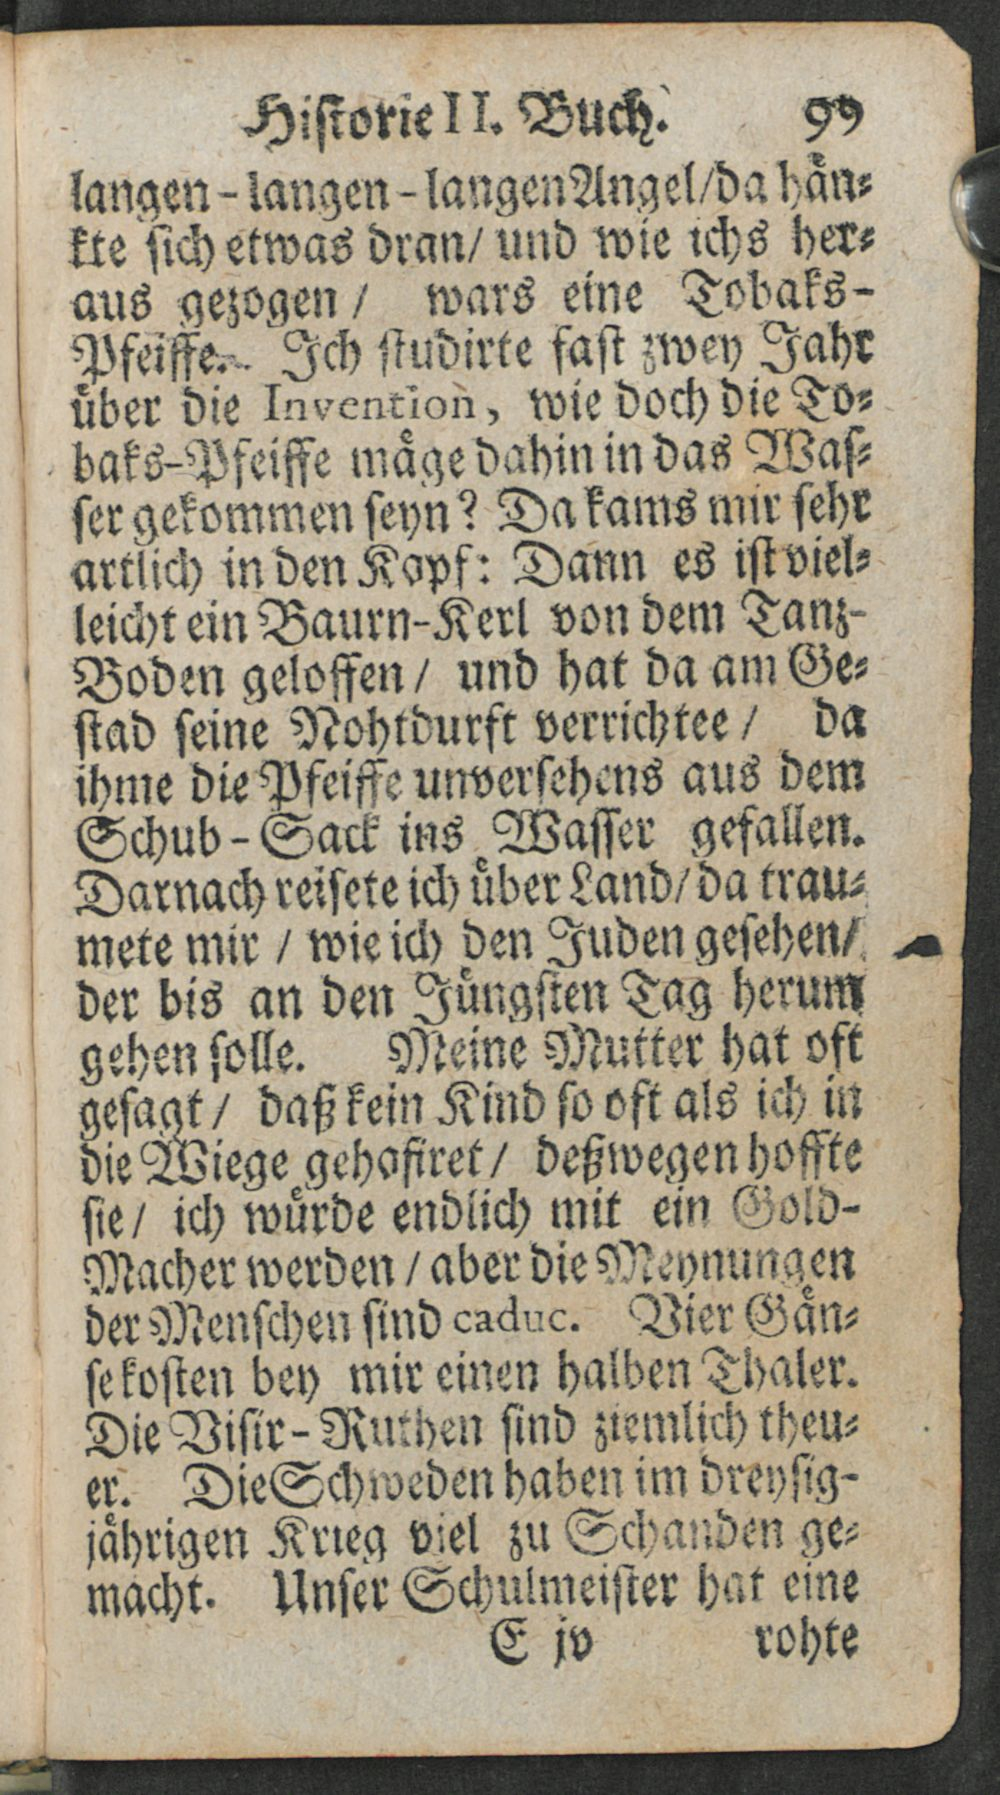 Historie II. Buch. 99
langen - langen - langen Angel/ da hån⸗
kte sich etwas dran/ und wie ichs her⸗
aus gezogen / wars eine Tobaks-
Pfeiffe. Ich studirte fast zwey Jahr
ůber die Invention, wie doch die To⸗
baks-Pfeiffe måge dahin in das Was⸗
ser gekommen seyn? Da kams mir sehr
artlich in den Kopf: Dann es ist viel⸗
leicht ein Baurn-Kerl von dem Tanz-
Boden geloffen / und hat da am Ge⸗
stad seine Nohtdurft verrichtee / da
ihme die Pfeiffe unversehens aus dem
Schub - Sack ins Wasser gefallen.
Darnach reisete ich ůber Land/ da trau⸗
mete mir / wie ich den Juden gesehen/
der bis an den Jůngsten Tag herum
gehen solle. Meine Mutter hat oft
gesagt / daß kein Kind so oft als ich in
die Wiege gehofiret / deßwegen hoffte
sie / ich wůrde endlich mit ein Gold-
Macher werden / aber die Meynungen
der Menschen sind caduc. Vier Gån⸗
se kosten bey mir einen halben Thaler.
Die Visir - Ruthen sind ziemlich theu⸗
er. Die Schweden haben im dreysig-
jåhrigen Krieg viel zu Schanden ge⸗
macht. Unser Schulmeister hat eine
E jv rohte